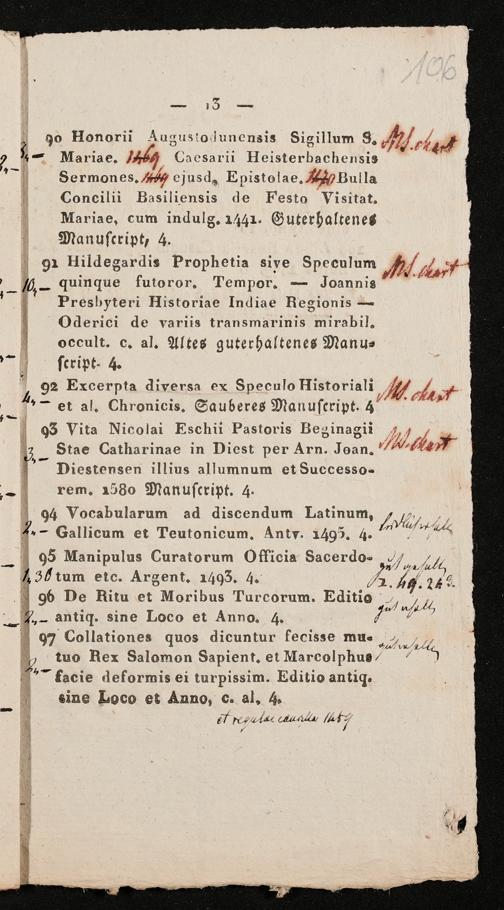 106
— 13 —
90 Honorii Augustodunensis Sigillum S. MS. chart
3,– Mariae. 1469 Caesarii Heisterbachensis
Sermones. 1469 ejusd. Epistolae. 1470 Bulla
Concilii Basiliensis de Festo Visitat.
Mariae, cum indulg. 1441. Guterhaltenes
Manuſcript, 4.
91 Hildegardis Prophetia sive Speculum MS. chart
10,– quinque futoror. Tempor. — Joannis
Presbyteri Historiae Indiae Regionis —
Oderici de variis transmarinis mirabil.
occult. c. al. Altes guterhaltenes Manu-
ſcript. 4.
92 Excerpta diversa ex Speculo Historiali MS. chart
4,– et al. Chronicis. Sauberes Manuſcript. 4
93 Vita Nicolai Eschii Pastoris Beginagii MS. chart
3,– Stae Catharinae in Diest per Arn. Joan.
Diestensen illius allumnum et Successo-
rem. 1580 Manuſcript. 4.
94 Vocabularum ad discendum Latinum,
2,– Gallicum et Teutonicum. Antv. 1495. 4.
95 Manipulus Curatorum Officia Sacerdo-
1,30 tum etc. Argent. 1493. 4. 2. 49. 243.
96 De Ritu et Moribus Turcorum. Editio
2,– antiq. sine Loco et Anno. 4.
97 Collationes quos dicuntur fecisse mu-
tuo Rex Salomon Sapient. et Marcolphus
2,– facie deformis ei turpissim. Editio antiq.
sine Loco et Anno, c. al. 4.
et regulae 1489